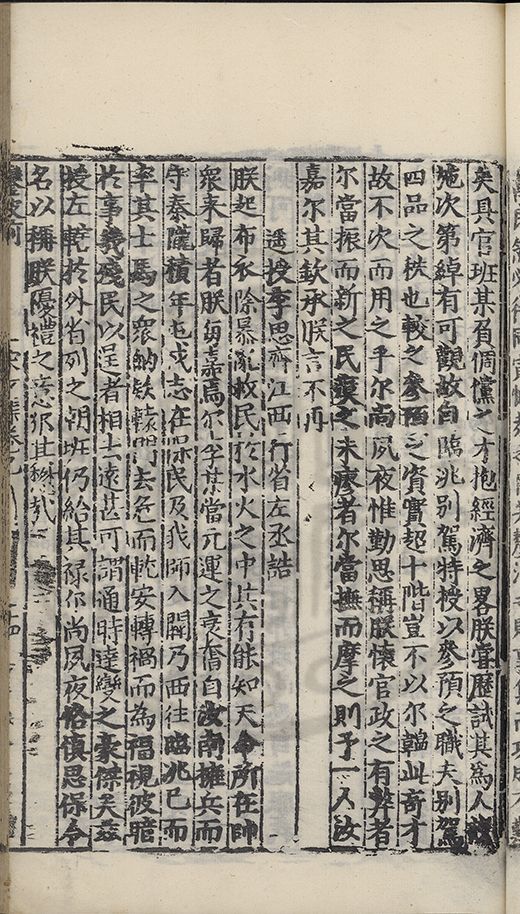 矣具官班某負倜儻之才抱經濟之畧朕嘗歷試其爲人
施次第綽有可觀故自臨洮別駕特授以參預之職夫別駕
四品之秩也較之參預之資實超十階豈不以尔韞此奇才
故不次而用之乎尔尚夙夜惟勤思稱朕懷官政之有弊者
尔當振而新之民瘼之未瘳者尔當撫而摩之則予一人汝
嘉尔其欽承朕言不再
遥授李思齊江西行省左丞誥
朕起布衣除暴亂救民於水火之中其有能知天命所在帥
衆来歸者朕甚嘉焉尔李某當元運之衰奮自汝南擁兵而
守秦隴積年屯戍志在保民及我師入關乃西往臨洮已而
率其士馬之衆納欵轅門去危而就安轉禍而為福視彼暗
於事幾殘民以逞者相去遠甚可謂通時達變之豪傑矣兹
授左轄於外省列之朝班仍給其禄尔尚夙夜恪慎思保令
名以稱朕優禮之意尔其懋哉